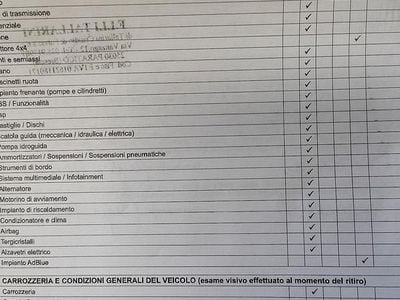 di trasmissione
enziale
one
ttore 4x4
nti e semiassi
ano
scinetti ruota
pianto frenante (pompe e cilindretti)
BS / Funzionalità
sp
astiglie / Dischi
catola guida (meccanica / idraulica / elettrica)
ompa idroguida
Ammortizzatori / Sospensioni / Sospensioni pneumatiche
Strumenti di bordo
Sistema multimediale / Infotainment
Alternatore
Motorino di avviamento
Impianto di riscaldamento
Condizionatore e clima
Airbag
Tergicristalli
Alzavetri elettrico
Impianto AdBlue
CARROZZERIA E CONDIZIONI GENERALI DEL VEICOLO (esame visivo effettuato al momento del ritiro)
Carrozzeria